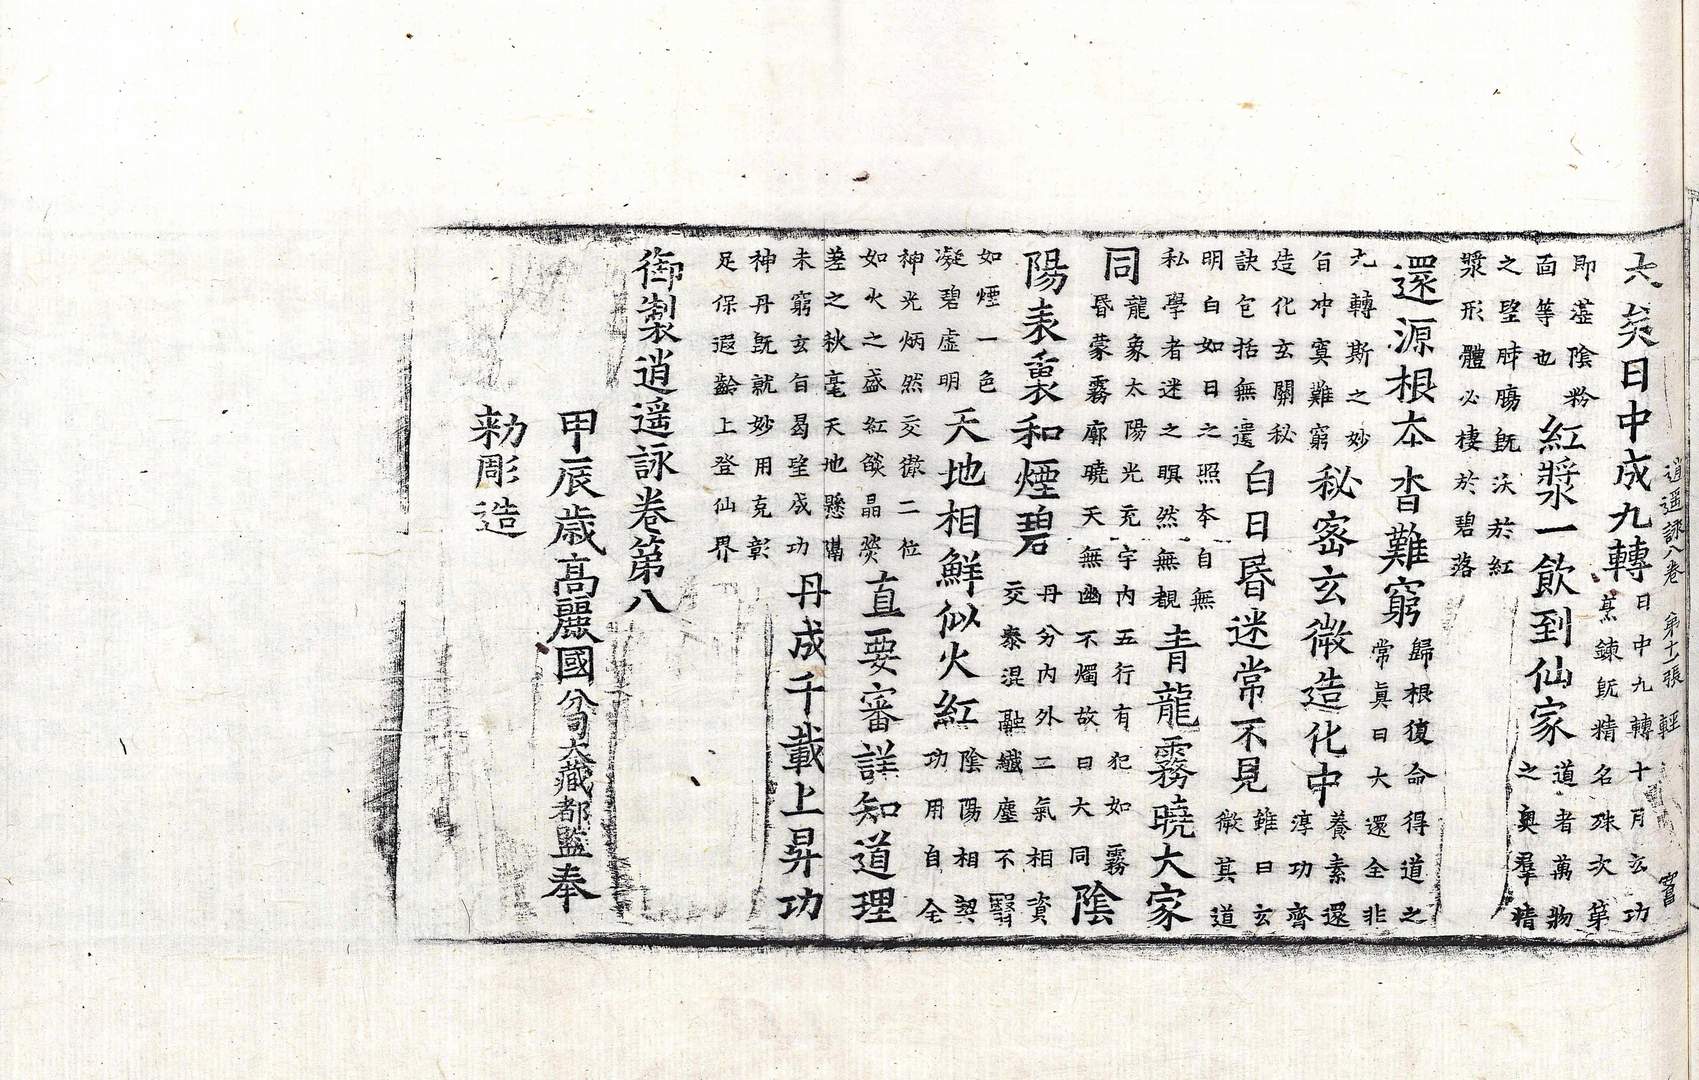 逍遥詠八卷 第十一張 輕
六矣日中成九轉
日中九轉十月玄功
烹鍊既精名殊次第
即蘂陰粉
面等也
紅漿一飲到仙家
道者萬物
之奥羣精
之堅脖腸既沃於紅
漿形體必棲於碧落
還源根本杳難窮
歸根復命得道之
常眞曰大還全非
九轉斯之妙
旨冲寞難窮
秘密玄微造化中
養素還
淳功齊
造化玄關秘
訣包括無遺
白日昏迷常不見
雖曰玄
微其道
明白如日之照本自無
私學者迷之瞑然無覩
青龍霧曉大家
同
龍象太陽光充宇内五行有犯如霧
昏蒙霧廓曉天無幽不燭故曰大同
陰
陽表裏和煙碧
丹分内外二氣相資
交泰混融纖塵不翳
如煙一色
凝碧虛明
天地相鮮似火紅
陰陽相契
功用自全
神光炳然交徹二位
如火之盛紅燄晶熒
直要審詳知道理
差之秋毫天地懸隔
未窮玄旨曷望成功
丹成千載上昇功
神丹既就妙用克彰
足保遐齡上登仙界
御製逍遥詠卷第八
甲辰歲高麗國分司大藏都監奉
勅彫造